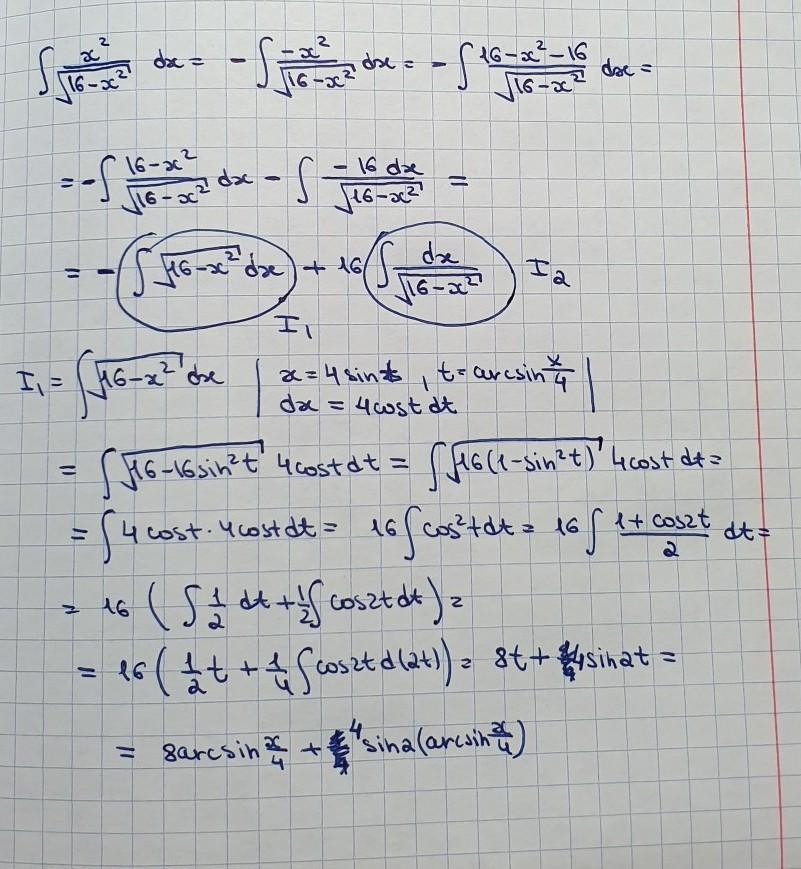 ∫ x²/√(16-x²) dx = -∫ -x²/√(16-x²) dx = -∫ (16-x²-16)/√(16-x²) dx =
= -∫ (16-x²)/√(16-x²) dx - ∫ (-16 dx)/√(16-x²) =
= -∫ √(16-x²) dx + 16 ∫ dx/√(16-x²) I₂
I₁
I₁ = ∫ √(16-x²) dx | x = 4 sin t, t = arcsin x/4 |
dx = 4 cos t dt
= ∫ √(16-16sin²t) 4cost dt = ∫ √(16(1-sin²t)) 4cost dt =
= ∫ 4 cost · 4 cost dt = 16 ∫ cos²t dt = 16 ∫ (1+cos2t)/2 dt =
= 16 ( ∫ 1/2 dt + 1/2 ∫ cos2t dt ) =
= 16 ( 1/2 t + 1/4 ∫ cos2t d(2t) ) = 8t + 4 sin2t =
= 8arcsin x/4 + 4 sin2(arcsin x/4)